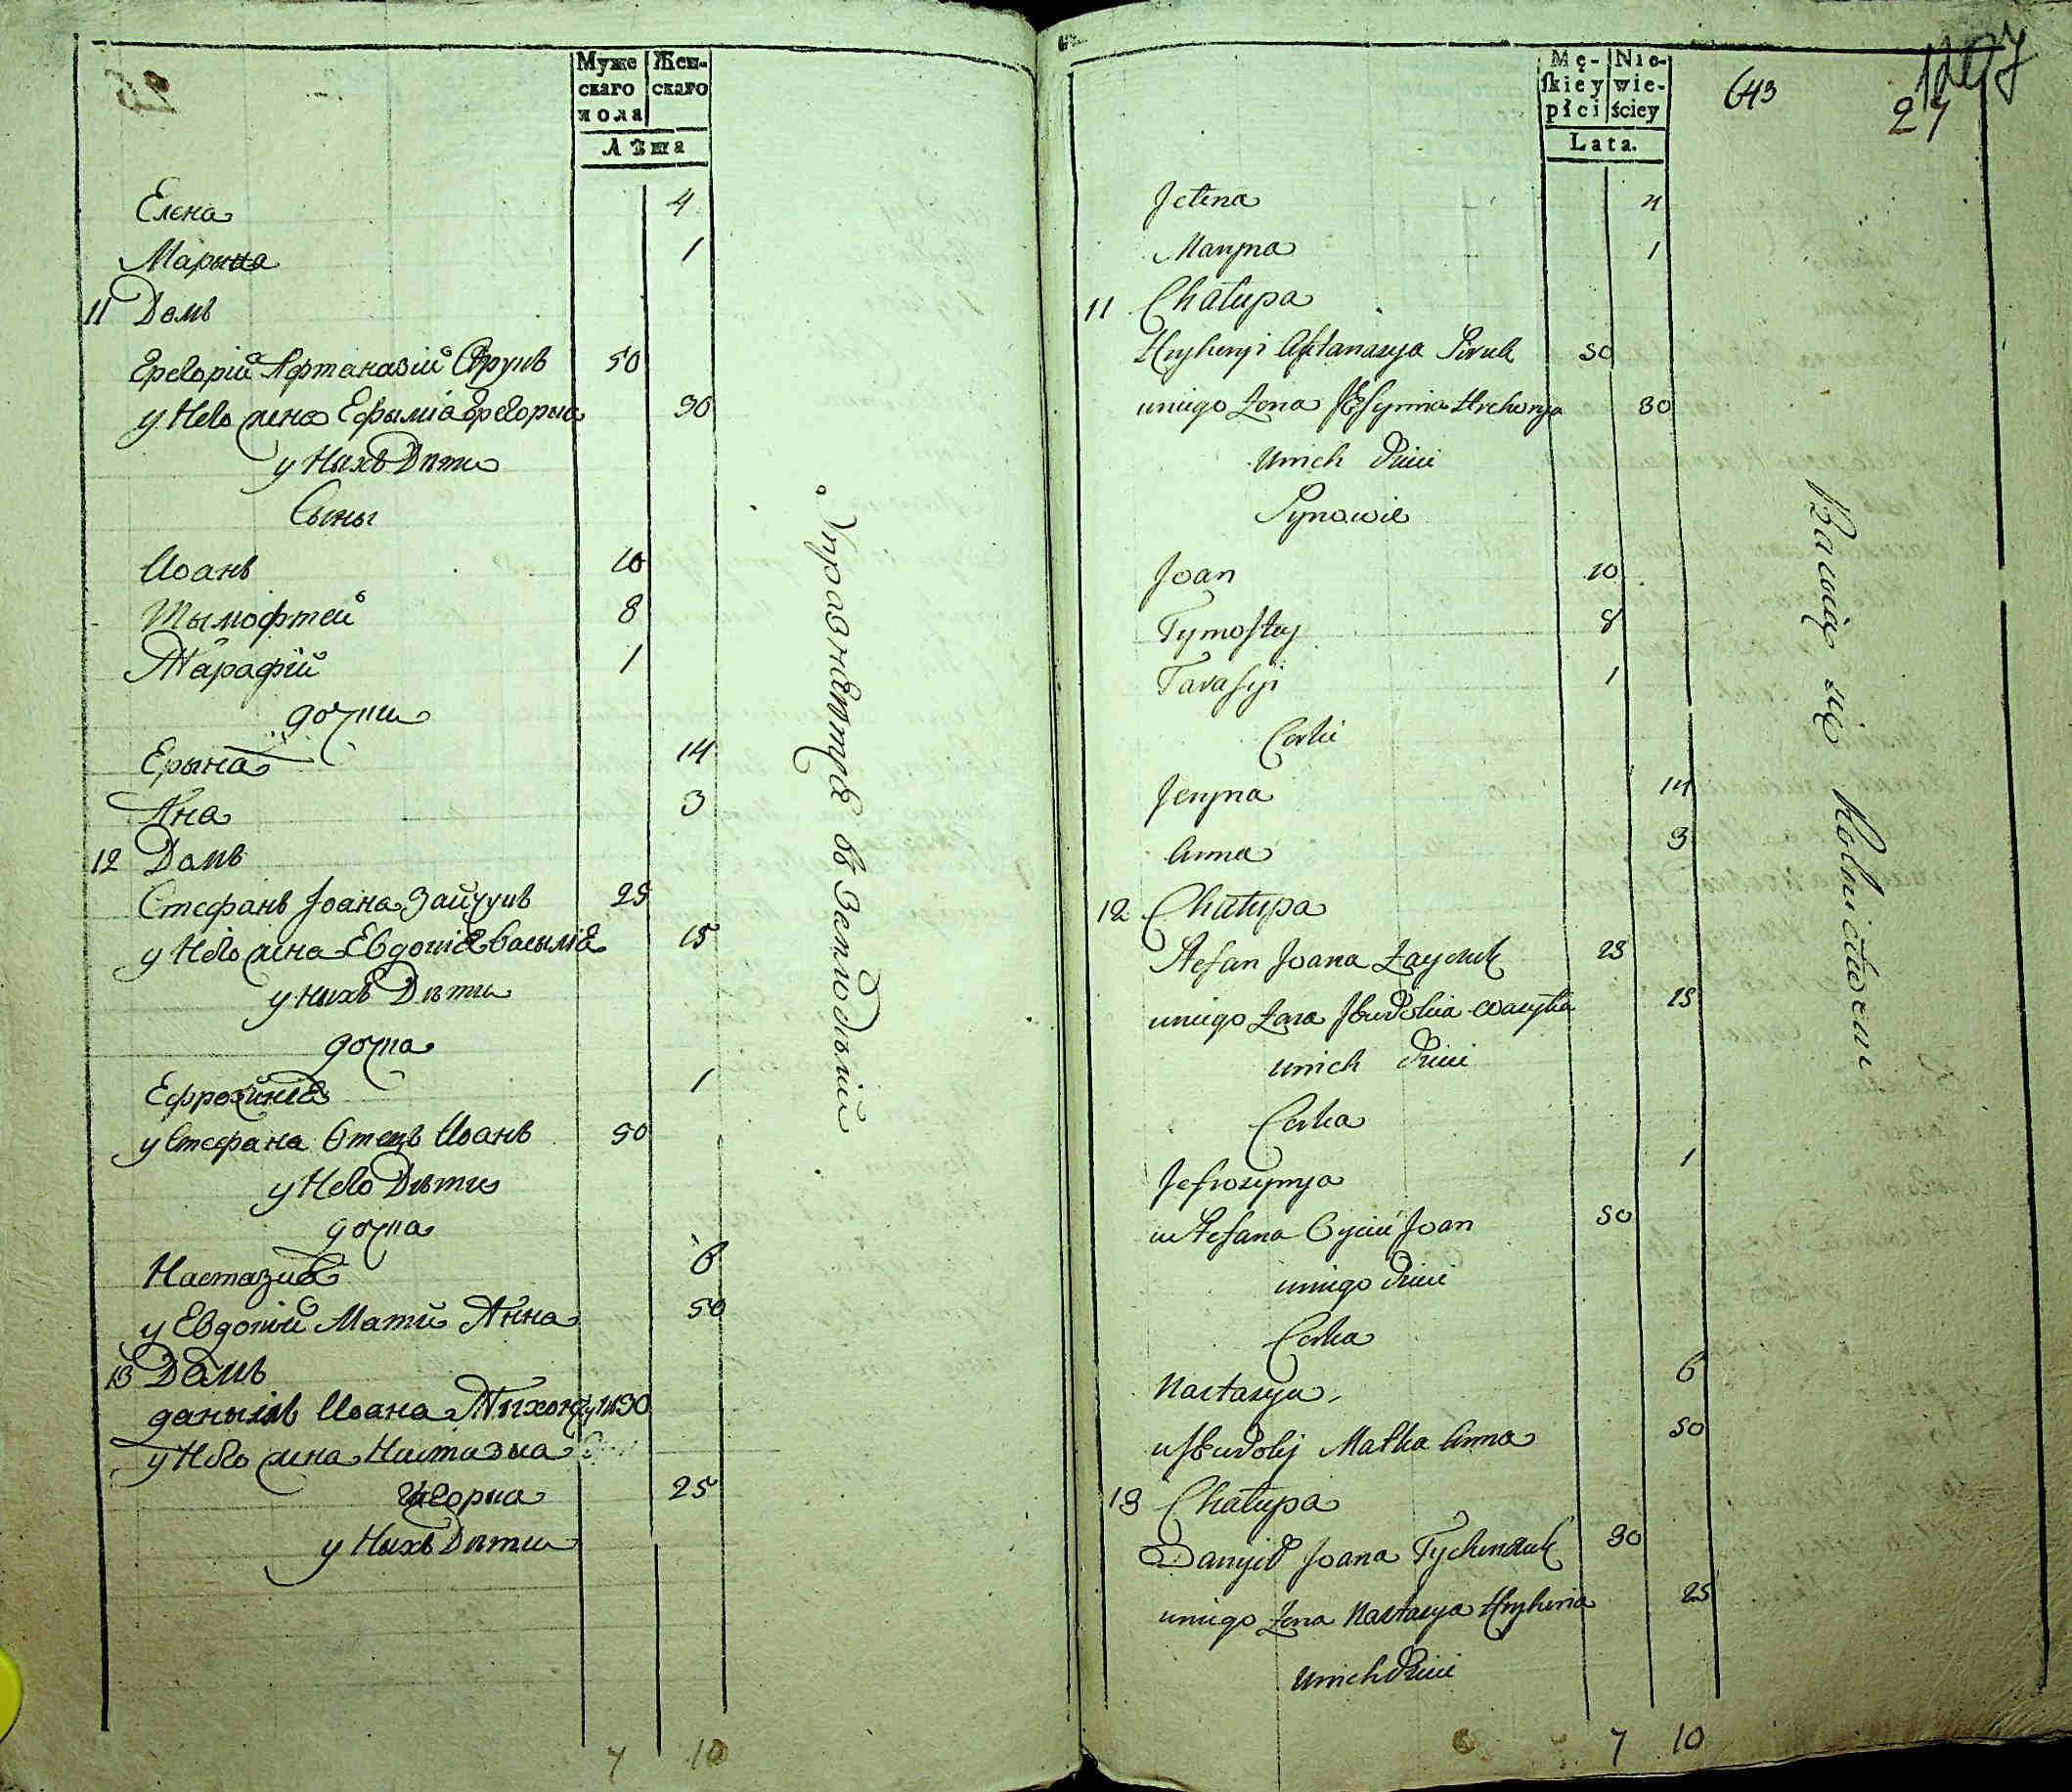 Муже
скаго
пола
Жен-
скаго
Лѣта
Елена 4
Марина 1
11 Домъ
Грегорій Афтаназій 50
у Него жена Ефыміа Грегорыа 30
у Ныхъ Дѣти
Сыны
Иоанъ 10
Тымофтей 8
Тарафій 1
дочки
Ерына 14
Ана 3
12 Домъ
Стефанъ Јоана Зайчукъ 25
у Него жена Евдокіа Васыліа 15
у Ныхъ Дѣти
дочка
Ефрозиніа 1
у Стефана Отецъ Иоанъ 50
у Него Дѣти
дочка
Настазиа 6
у Евдокіи Мати Анна 50
13 Домъ
Данылъ Иоана Тыхончукъ 30
у Него жена Настазыа
Грегорыа 25
у Ныхъ Дѣти
7 10
въ
26
Mę-
skiey
płci
Nie-
wie-
ściey
Lata.
643
1207
27
Jelena 4
Maryna 1
11 Chałupa
Hryhoryi Aftanasya 50
uniego Żona Jefymia Hrehorya 30
unich dzieci
Synowie
Joan 10
Tymoftey 8
Tarafyi 1
Corki
Jeryna 14
Anna 3
12 Chałupa
Stefan Joana Zayczuk 25
uniego Żona Jewdokia Wasyla 15
unich dzieci
Corka
Jefrozynya 1
u Stefana Oyciec Joan 50
uniego dzieci
Corka
Nastasya 6
u Jewdokij Matka Anna 50
13 Chałupa
Danyił Joana Tychonczuk 30
uniego Żona Nastasya Hryhoria 25
unich dzieci
Bawią się Rolnictwem
7 10